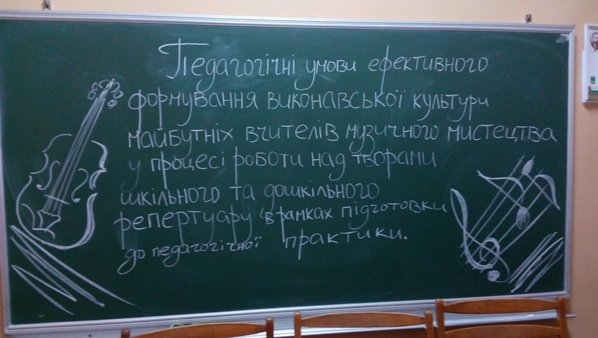 Педагогічні умови ефективного
формування виконавської культури
майбутніх вчителів музичного мистецтва
у процесі роботи над творами
шкільного та дошкільного
репертуару в рамках підготовки
до педагогічної практики.